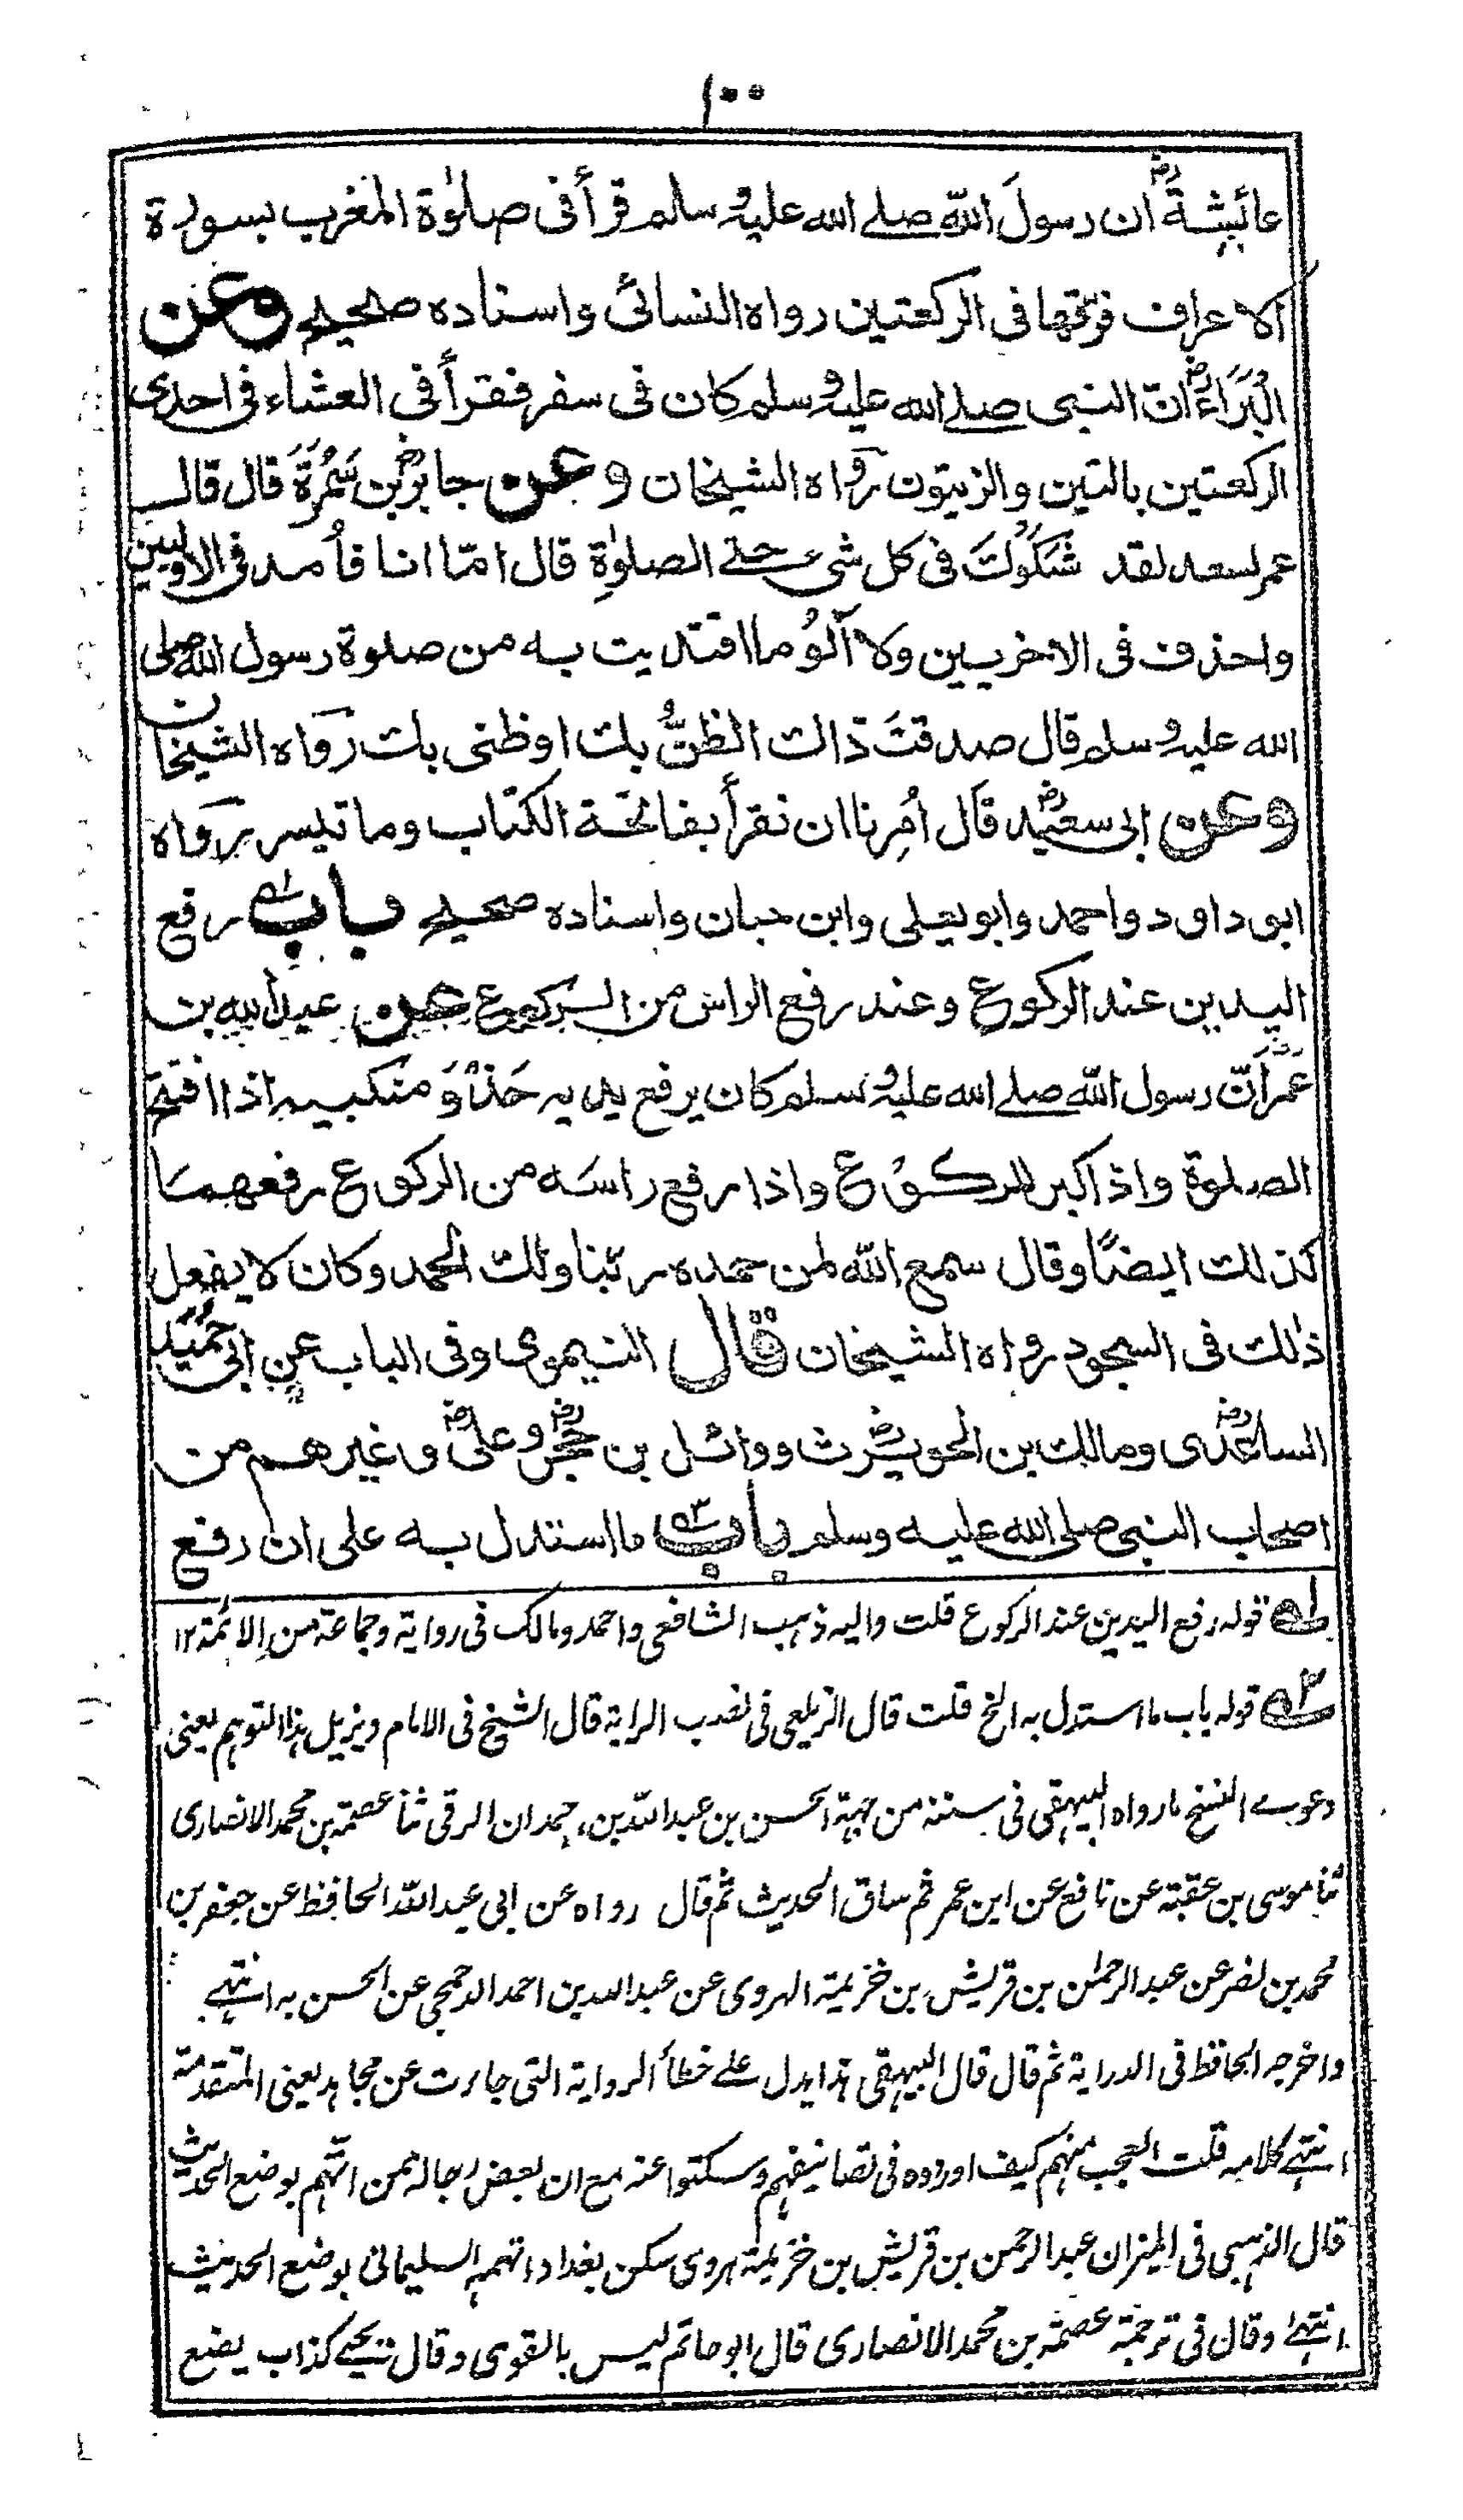 ١٠٠
عائِشةَ رض ان رسولَ اللّٰه صلے الله عليه وسلم قرأ فى صلٰوة المغرب بسورة
الاعراف فرّقها فى الركعتين رواه النسائى واسناده صحيح وعن
البَرَاءِ رض انّ النبى صلے الله عليه وسلم كان فى سفر فقرأ فى العشاء فى احدى
الركعتين بالتين والزيتون رواه الشيخان وعن جابر رض بن سَمُرَةَ قال قال
عمر لسعد لقد شَكَوْكَ فى كل شئ حتے الصلٰوةِ قال امّا انا فأمد فى الاوليين
واحذف فى الاخريين ولا آلُو ما اقتديت به من صلوة رسول الله صلى
الله عليه وسلم قال صدقتَ ذاك الظنُّ بك او ظنى بك رواه الشيخان
وعن ابى سعيد رض قال اُمِرنا ان نقرأ بفاتحة الكتاب وما تيسر رواه
ابو داود واحمد وابو يعلى وابن حبان واسناده صحيح باب رفع
اليدين عند الركوع وعند رفع الراس من الركوع عن عبد الله بن
عمر رض انّ رسول اللّٰه صلے الله عليه وسلم كان يرفع يديه حَذْوَ منكبيه اذا افتتح
الصلوة واذا كبر للركوع واذا رفع راسه من الركوع رفعهما
كذلك ايضًا وقال سمع اللّٰه لمن حمده ربّنا ولك الحمد وكان لا يفعل
ذٰلك فى السجود رواه الشيخان قال النيموى وفى الباب عن ابى حُمَيْد
الساعدى رض ومالك بن الحويرث رض ووائل بن حُجر رض وعلى رض وغيرهم من
اصحاب النبى صلى الله عليه وسلم باب ما استدل به على ان رفع
١ه قوله رفع اليدين عند الركوع قلت واليه ذهب الشافعى واحمد ومالك فى رواية وجماعة من الائمة ١٢
٢ه قوله باب ما استدل به الخ قلت قال الزيلعى فى نصب الراية قال الشيخ فى الامام ويزيل هذا التوهم يعنى
دعوے النسخ ما رواه البيهقى فى سننه من جهة الحسن بن عبد اللّٰه بن حمدان الرقى ثنا عصمة بن محمد الانصارى
ثنا موسى بن عقبة عن نافع عن ابن عمر ثم ساق الحديث ثم قال رواه عن ابى عبد اللّٰه الحافظ عن جعفر بن
محمد بن نصر عن عبد الرحمٰن بن قريش بن خزيمة الهروى عن عبد الله بن احمد الدمجى عن الحسن به انتہے
واخرجه الحافظ فى الدراية ثم قال قال البيهقى هذا يدل علے خطأ الرواية التى جاءت عن مجاهد يعنى المتقدمة
انتہے كلامه قلت العجب منهم كيف اوردوه فى تصانيفهم وسكتوا عنه مع ان بعض رجاله ممن اتهم بوضع الحديث
قال الذهبى فى الميزان عبد الرحمن بن قريش بن خزيمة هروى سكن بغداد اتهمه السليمانى بوضع الحديث
انتہے وقال فى ترجمة عصمة بن محمد الانصارى قال ابو حاتم ليس بالقوى وقال يحيے كذاب يضع